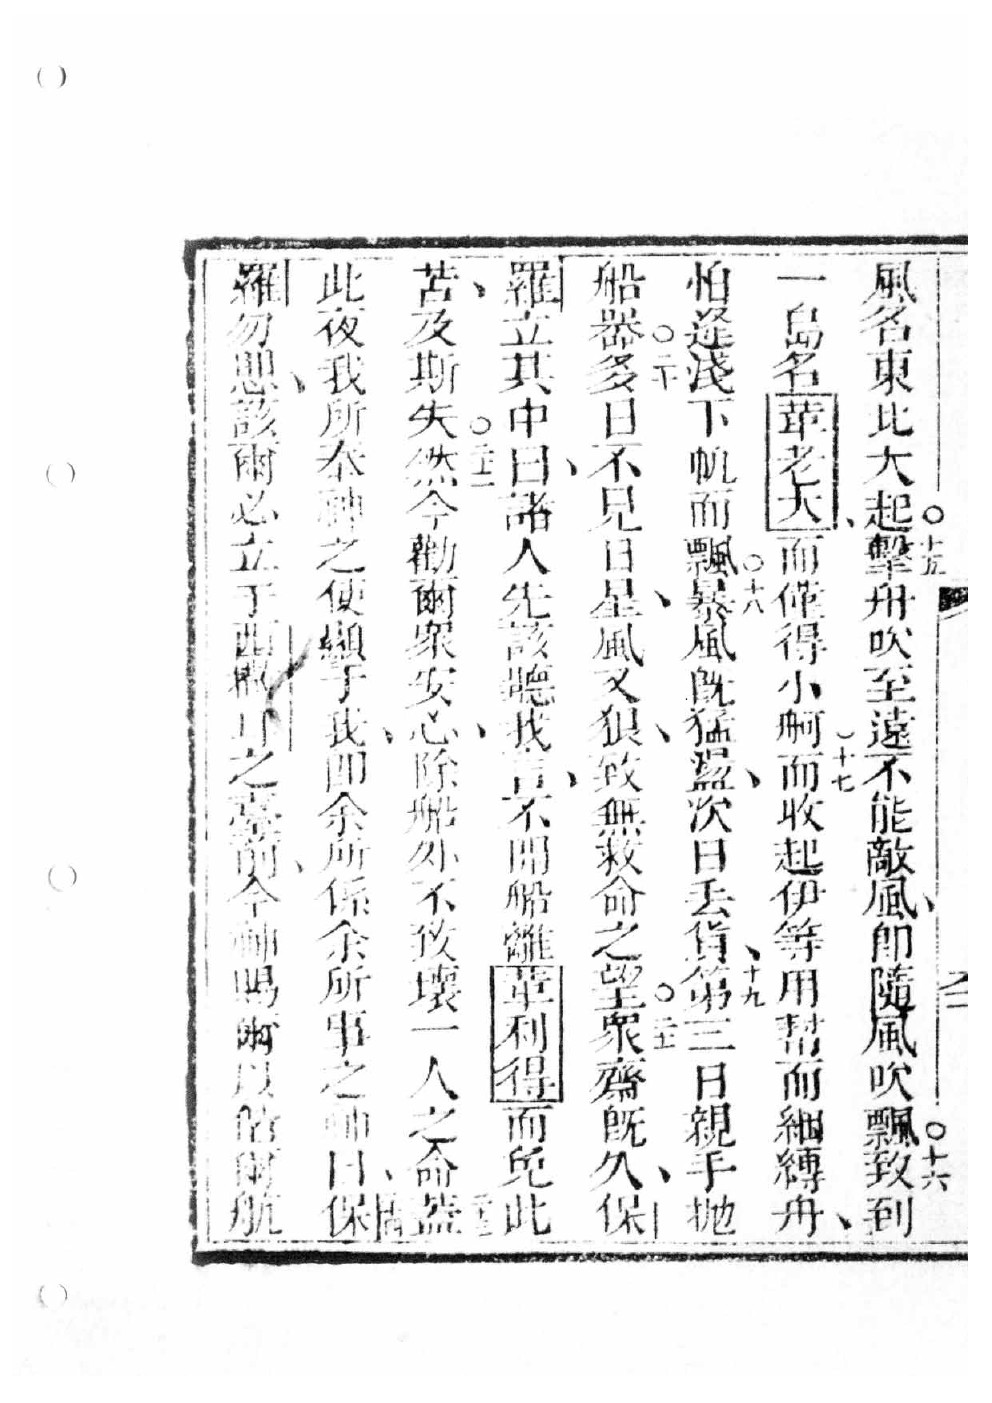 風名東北大起擊舟吹至遠不能敵風、即隨風吹飄致到
○十五
○十六
一島名葦老大、而僅得小舸而收起伊等用幇而綑縛舟、
○十七
怕逢淺下帆而飄暴風旣猛盪、次日丢貨、第三日親手拋
○十八
十九
船器多日不見日星、風又狠、致無救命之望衆齋旣久、保
○二十
○二十一
羅立其中曰、諸人先該聽我言、不開船離葦利得而免此
苦、及斯失然今勸爾衆安心、除船外不致壞一人之命蓋
○二十二
二十三
此夜我所奉神之使顯于我、即余所係余所事之神曰、保
二十四
羅勿思、該爾必立于西之臺前、今神賜爾以偕爾航